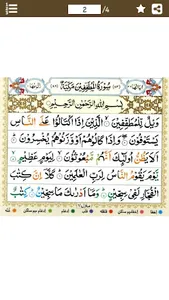 2 /4
سُوْرَةُ الْمُطَفِّفِيْنَ مَكِّيَّةٌ
بِسْمِ اللّٰهِ الرَّحْمٰنِ الرَّحِيْمِ
وَيْلٌ لِّلْمُطَفِّفِيْنَ الَّذِيْنَ اِذَا اكْتَالُوْا عَلَى النَّاسِ
يَسْتَوْفُوْنَ وَاِذَا كَالُوْهُمْ اَوْ وَّزَنُوْهُمْ يُخْسِرُوْنَ
اَلَا يَظُنُّ اُولٰٓئِكَ اَنَّهُمْ مَّبْعُوْثُوْنَ لِيَوْمٍ عَظِيْمٍ
يَّوْمَ يَقُوْمُ النَّاسُ لِرَبِّ الْعٰلَمِيْنَ كَلَّآ اِنَّ كِتٰبَ
الْفُجَّارِ لَفِيْ سِجِّيْنٍ وَمَآ اَدْرٰىكَ مَا سِجِّيْنٌ كِتٰبٌ